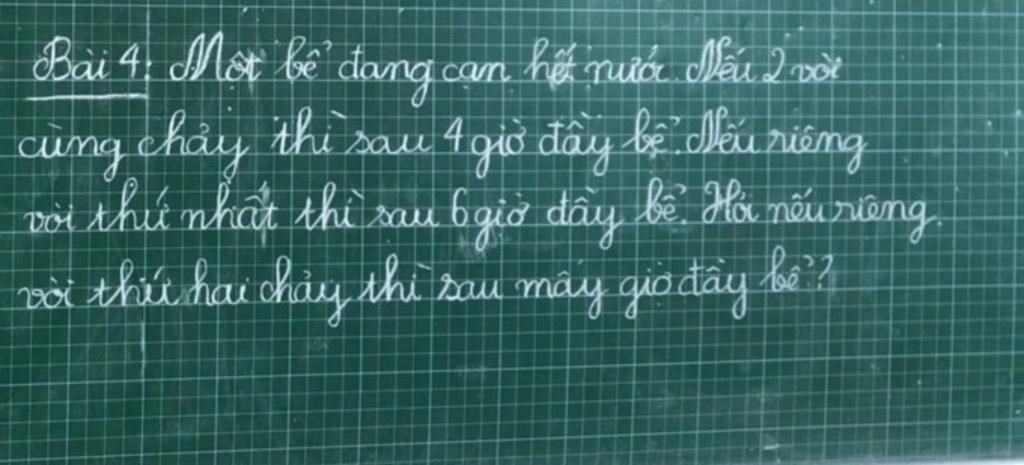 Bài 4: Một bể đang cạn hết nước. Nếu 2 vòi
cùng chảy thì sau 4 giờ đầy bể. Nếu riêng
vòi thứ nhất thì sau 6 giờ đầy bể. Hỏi nếu riêng
vòi thứ hai chảy thì sau mấy giờ đầy bể?